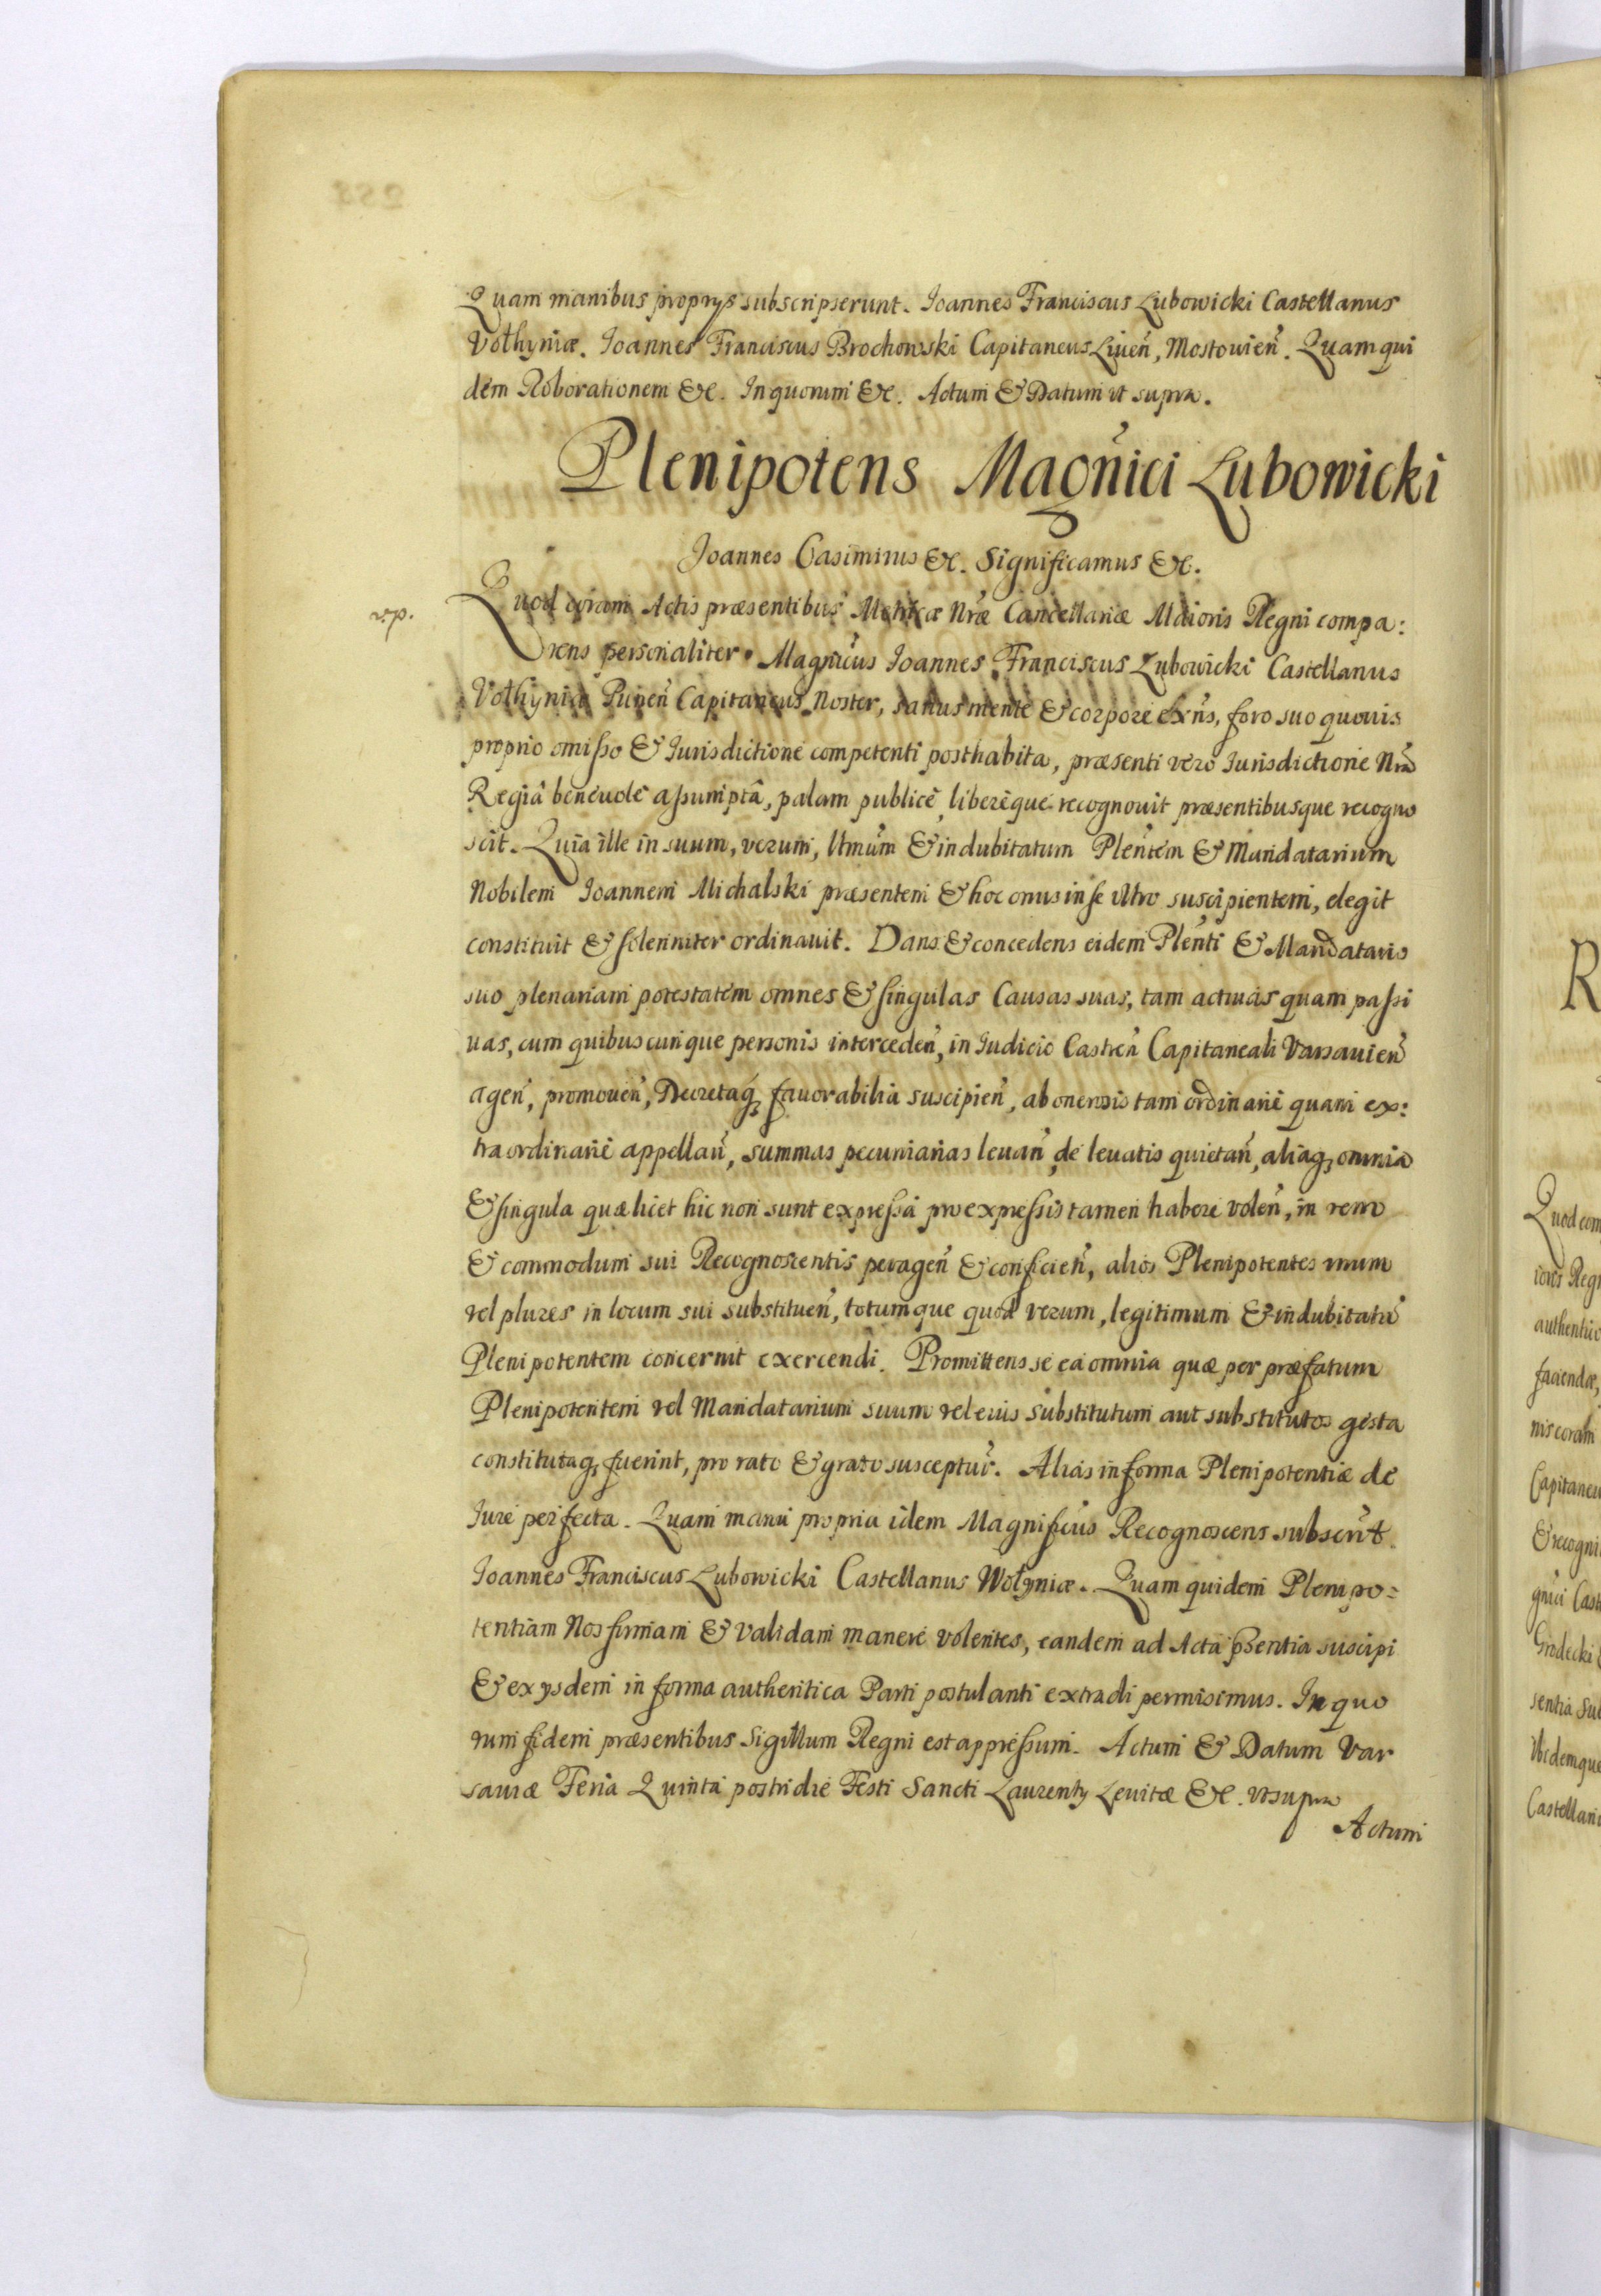 Quam manibus proprys subscripserunt. Ioannes Franciscus Lubowicki Castellanus
Vołhyniæ. Ioannes Franciscus Brochowski Capitaneus Liuen̄, Mostouien̄. Quam qui
dem Roborationem &c. In quorum &c. Actum & Datum ut supra.
Plenipotens Magn̄ici Lubowicki
Ioannes Casimirus &c. Significamus &c.
Quod coram Actis præsentibus Metricæ Nræ Cancellariæ Maioris Regni compa:
rens personaliter Magnicus Ioannes Franciscus Lubowicki Castellanus
Vołhyniæ Capitaneus Noster, sanus mente & corpore exn̄s, foro suo quouis
proprio omisso & Iurisdictione competenti posthabita, præsenti vero Iurisdictione Nrā
Regiâ beneuole assumptâ, palam publicè, liberèque recognouit præsentibusque recogno
scit. Quia ille in suum, verum, ltmūm & indubitatum Plen̄tem & Mandatarium
Nobilem Ioannem Michalski præsentem & hoc onus in se ultro suscipientem, elegit
constituit & solenniter ordinauit. Dans & concedens eidem Plen̄ti & Mandatario
suo plenariam potestatem omnes & singulas Causas suas, tam actiuas quam passi
uas, cum quibuscunque personis interceden̄, in Iudicio Castren̄ Capitaneali Varsauien̄
agen̄, promouen̄, Decretaq; fauorabilia suscipien̄, ab onerosis tam ordinarie quam ex:
traordinariè appellan̄, summas pecuniarias leuan̄, de leuatis quietan̄, aliaq; omnia
& singula quæ licet hic non sunt expressa pro expressis tamen habere volen̄, in rem
& commodum sui Recognoscentis peragen̄ & conficien̄, alios Plenipotentes unum
vel plures in locum sui substituen̄, totumque quod verum, legitimum & indubitatū
Plenipotentem concernit exercendi. Promittens se ea omnia quæ per præfatum
Plenipotentem vel Mandatarium suum vel eius substitutum aut substitutos gesta
constitutaq; fuerint, pro rato & grato susceptur̄. Alias in forma Plenipotentiæ de
Iure perfecta. Quam manu propria idem Magnificus Recognoscens subscr̄t.
Ioannes Franciscus Lubowicki Castellanus Wołyniæ. Quam quidem Plenipo=
tentiam Nos firmam & validam manere volentes, eandem ad Acta p̄sentia suscipi
& ex ysdem in forma authentica Parti postulanti extradi permisimus. In quo
rum fidem præsentibus Sigillum Regni est appressum. Actum & Datum Var
sauiæ Feria Quinta postridie Festi Sancti Laurenty Leuitæ &c. vt supra
Actum